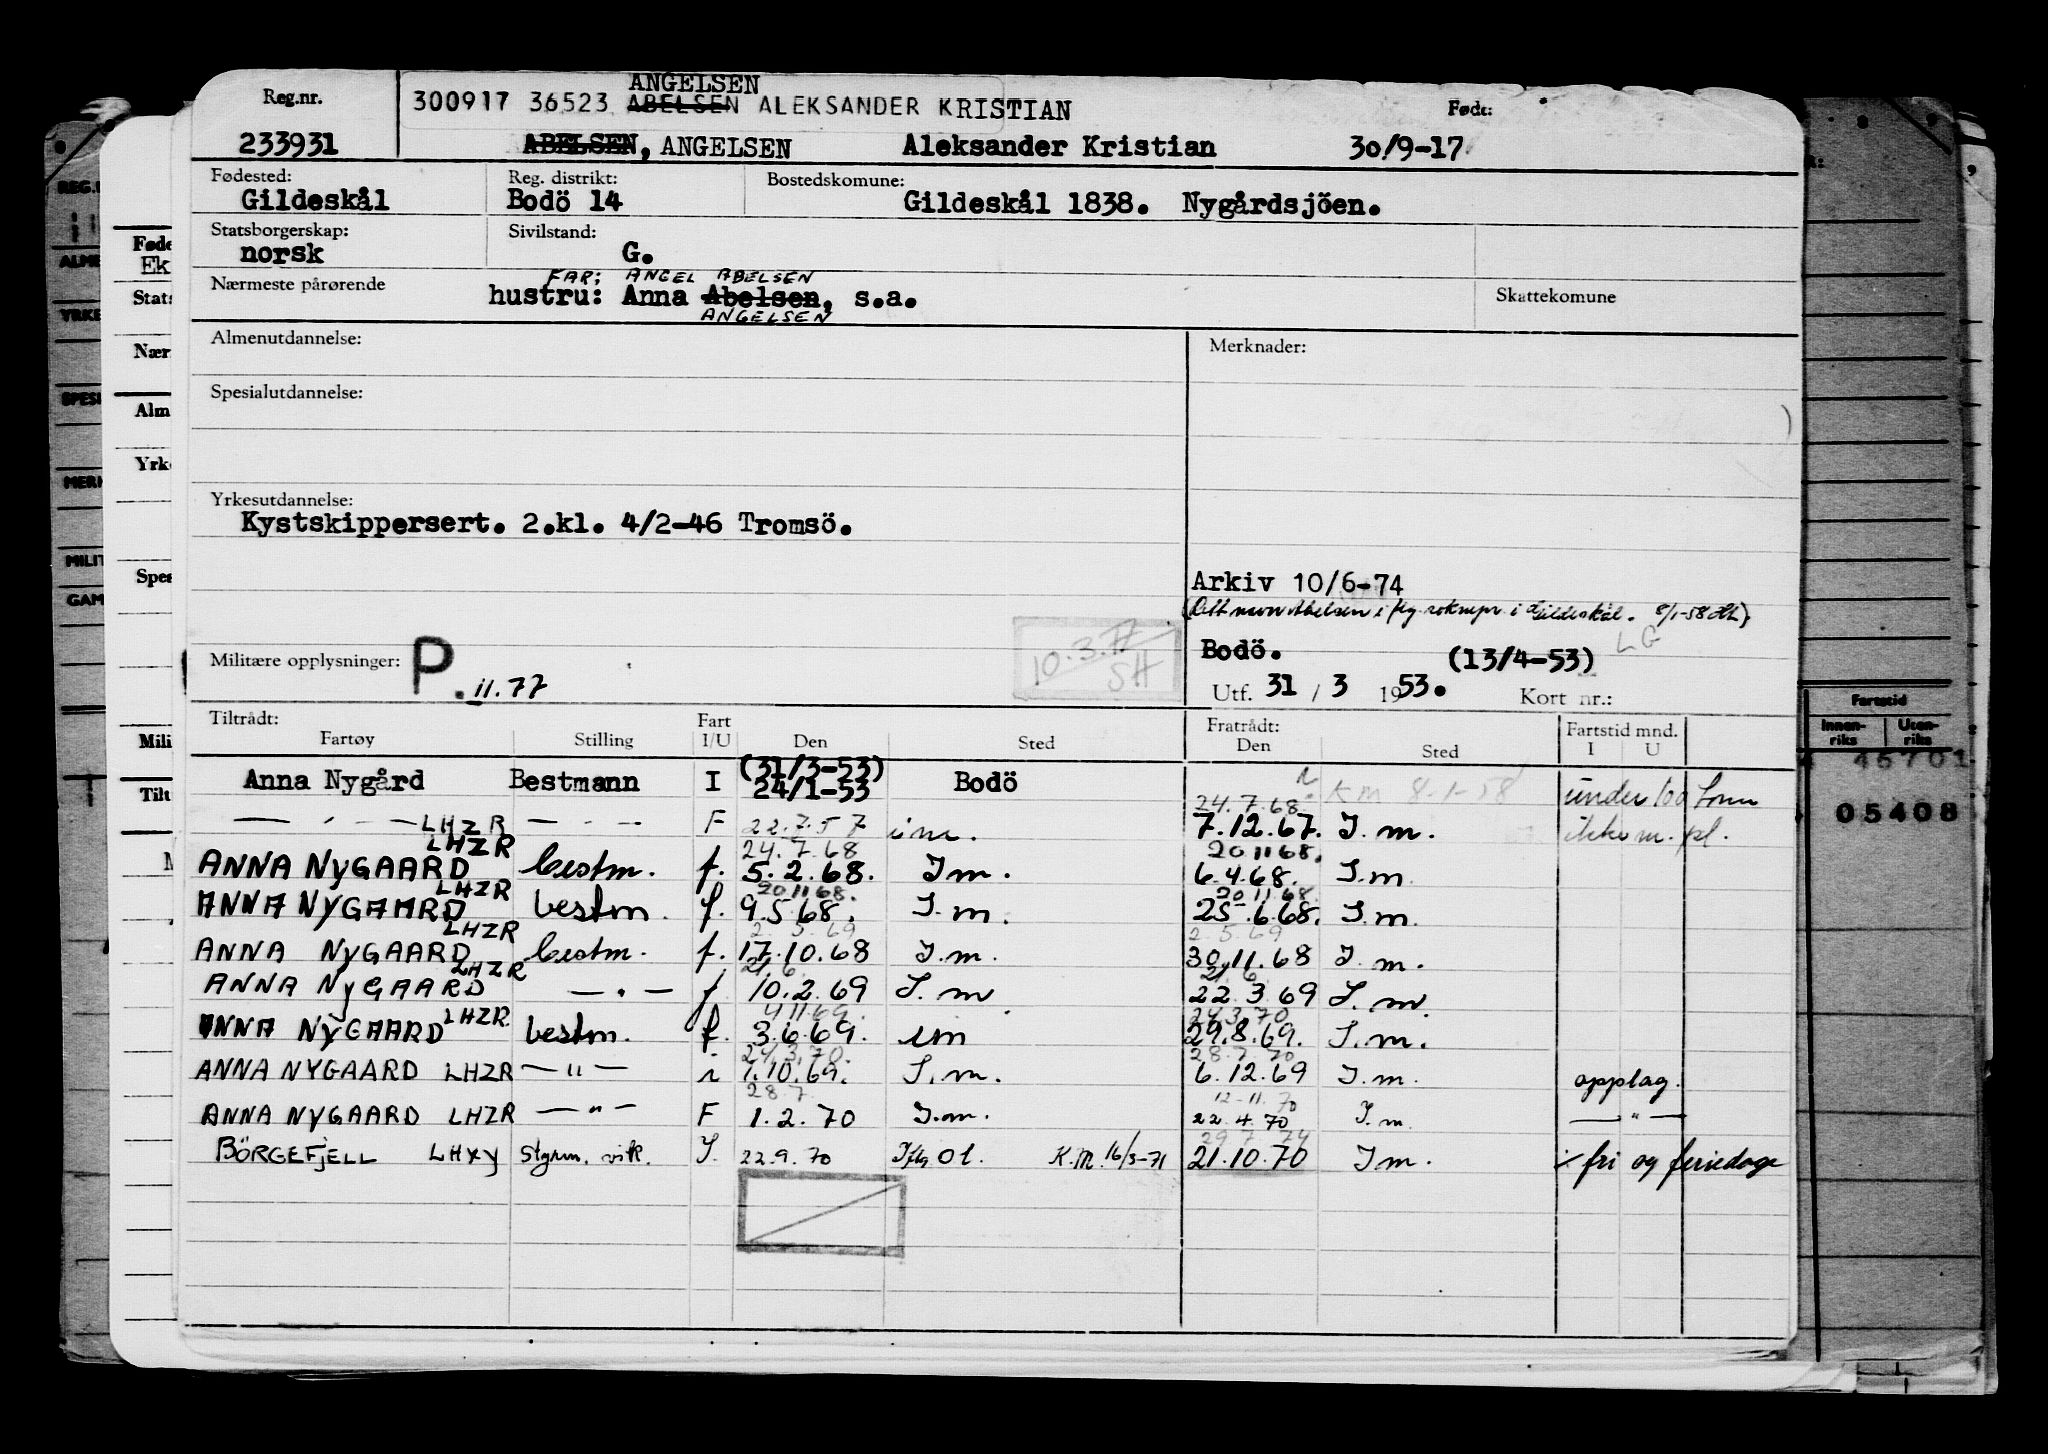 ANGELSEN
Reg.nr. 300917 36523 ABELSEN ALEKSANDER KRISTIAN Født:
233931 ABELSEN, ANGELSEN Aleksander Kristian 30/9-17
Fødested: Reg. distrikt: Bostedskomune:
Gildeskål Bodö 14 Gildeskål 1838. Nygårdsjöen.
Statsborgerskap: Sivilstand:
norsk G.
FAR: ANGEL ABELSEN
Nærmeste pårørende hustru: Anna Abelsen, s.a. Skattekomune
ANGELSEN
Almenutdannelse: Merknader:
Spesialutdannelse:
Yrkesutdannelse:
Kystskippersert. 2.kl. 4/2-46 Tromsö.
Arkiv 10/6-74
Abelsen i flg. i Gildeskål. 8/1-58
LG
10.3.77
SH
Bodö. (13/4-53)
Militære opplysninger: P. 11.77
Utf. 31 / 3 1953. Kort nr.:
Tiltrådt: Fart Fratrådt: Fartstid mnd.
Fartøy Stilling I/U Den Sted Den Sted I U
(31/3-53)
Anna Nygård Bestmann I 24/1-53 Bodö KM 8-1-58 under 100 tonn
24.7.68.
— " — LHZR — " — F 22.7.57 i m. 7.12.67. I. m. ikke m. pl.
LHZR 24.7.68 20 11 68.
ANNA NYGAARD bestm. f. 5.2.68. I m. 6.4.68. I.m
LHZR 20 11 68. 20 11 68.
ANNA NYGAARD bestm. f. 9.5 68. I.m. 25.6.68. I.m
LHZR 2.5.69 2.5.69
ANNA NYGAARD bestm. f. 17.10.68 I.m. 30.11.68 I. m.
LHZR 21.6. 21.6.
ANNA NYGAARD — " — f 10.2.69 I. m 22.3.69 I. m
LHZR. 4 11.69. 24.3.70
ANNA NYGAARD bestm. f. 3.6.69. im 29.8.69. I.m.
24.3.70. 28.7.70
ANNA NYGAARD LHZR — " — i 1.10.69. I.m. 6.12.69 I.m. opplag.
28.7. 12-11.70
ANNA NYGAARD LHZR — " — F 1.2.70 I.m. 22.4.70 I.m. — " —
29.7.74
BÖRGEFJELL LHXY Styrm. vik. I. 22.9.70 Iflg Ol. K.M. 16/3-71 21.10.70 I m. fri og feriedage
REG.
ALME
YRKE
SPESI
MERK
MILIT
GAM
Føde
Ek
Stats
Nær
Alm
Yrke
Spes
Mili
Tilt
Fartstid
Innen-riks Uten-riks
45701
05408